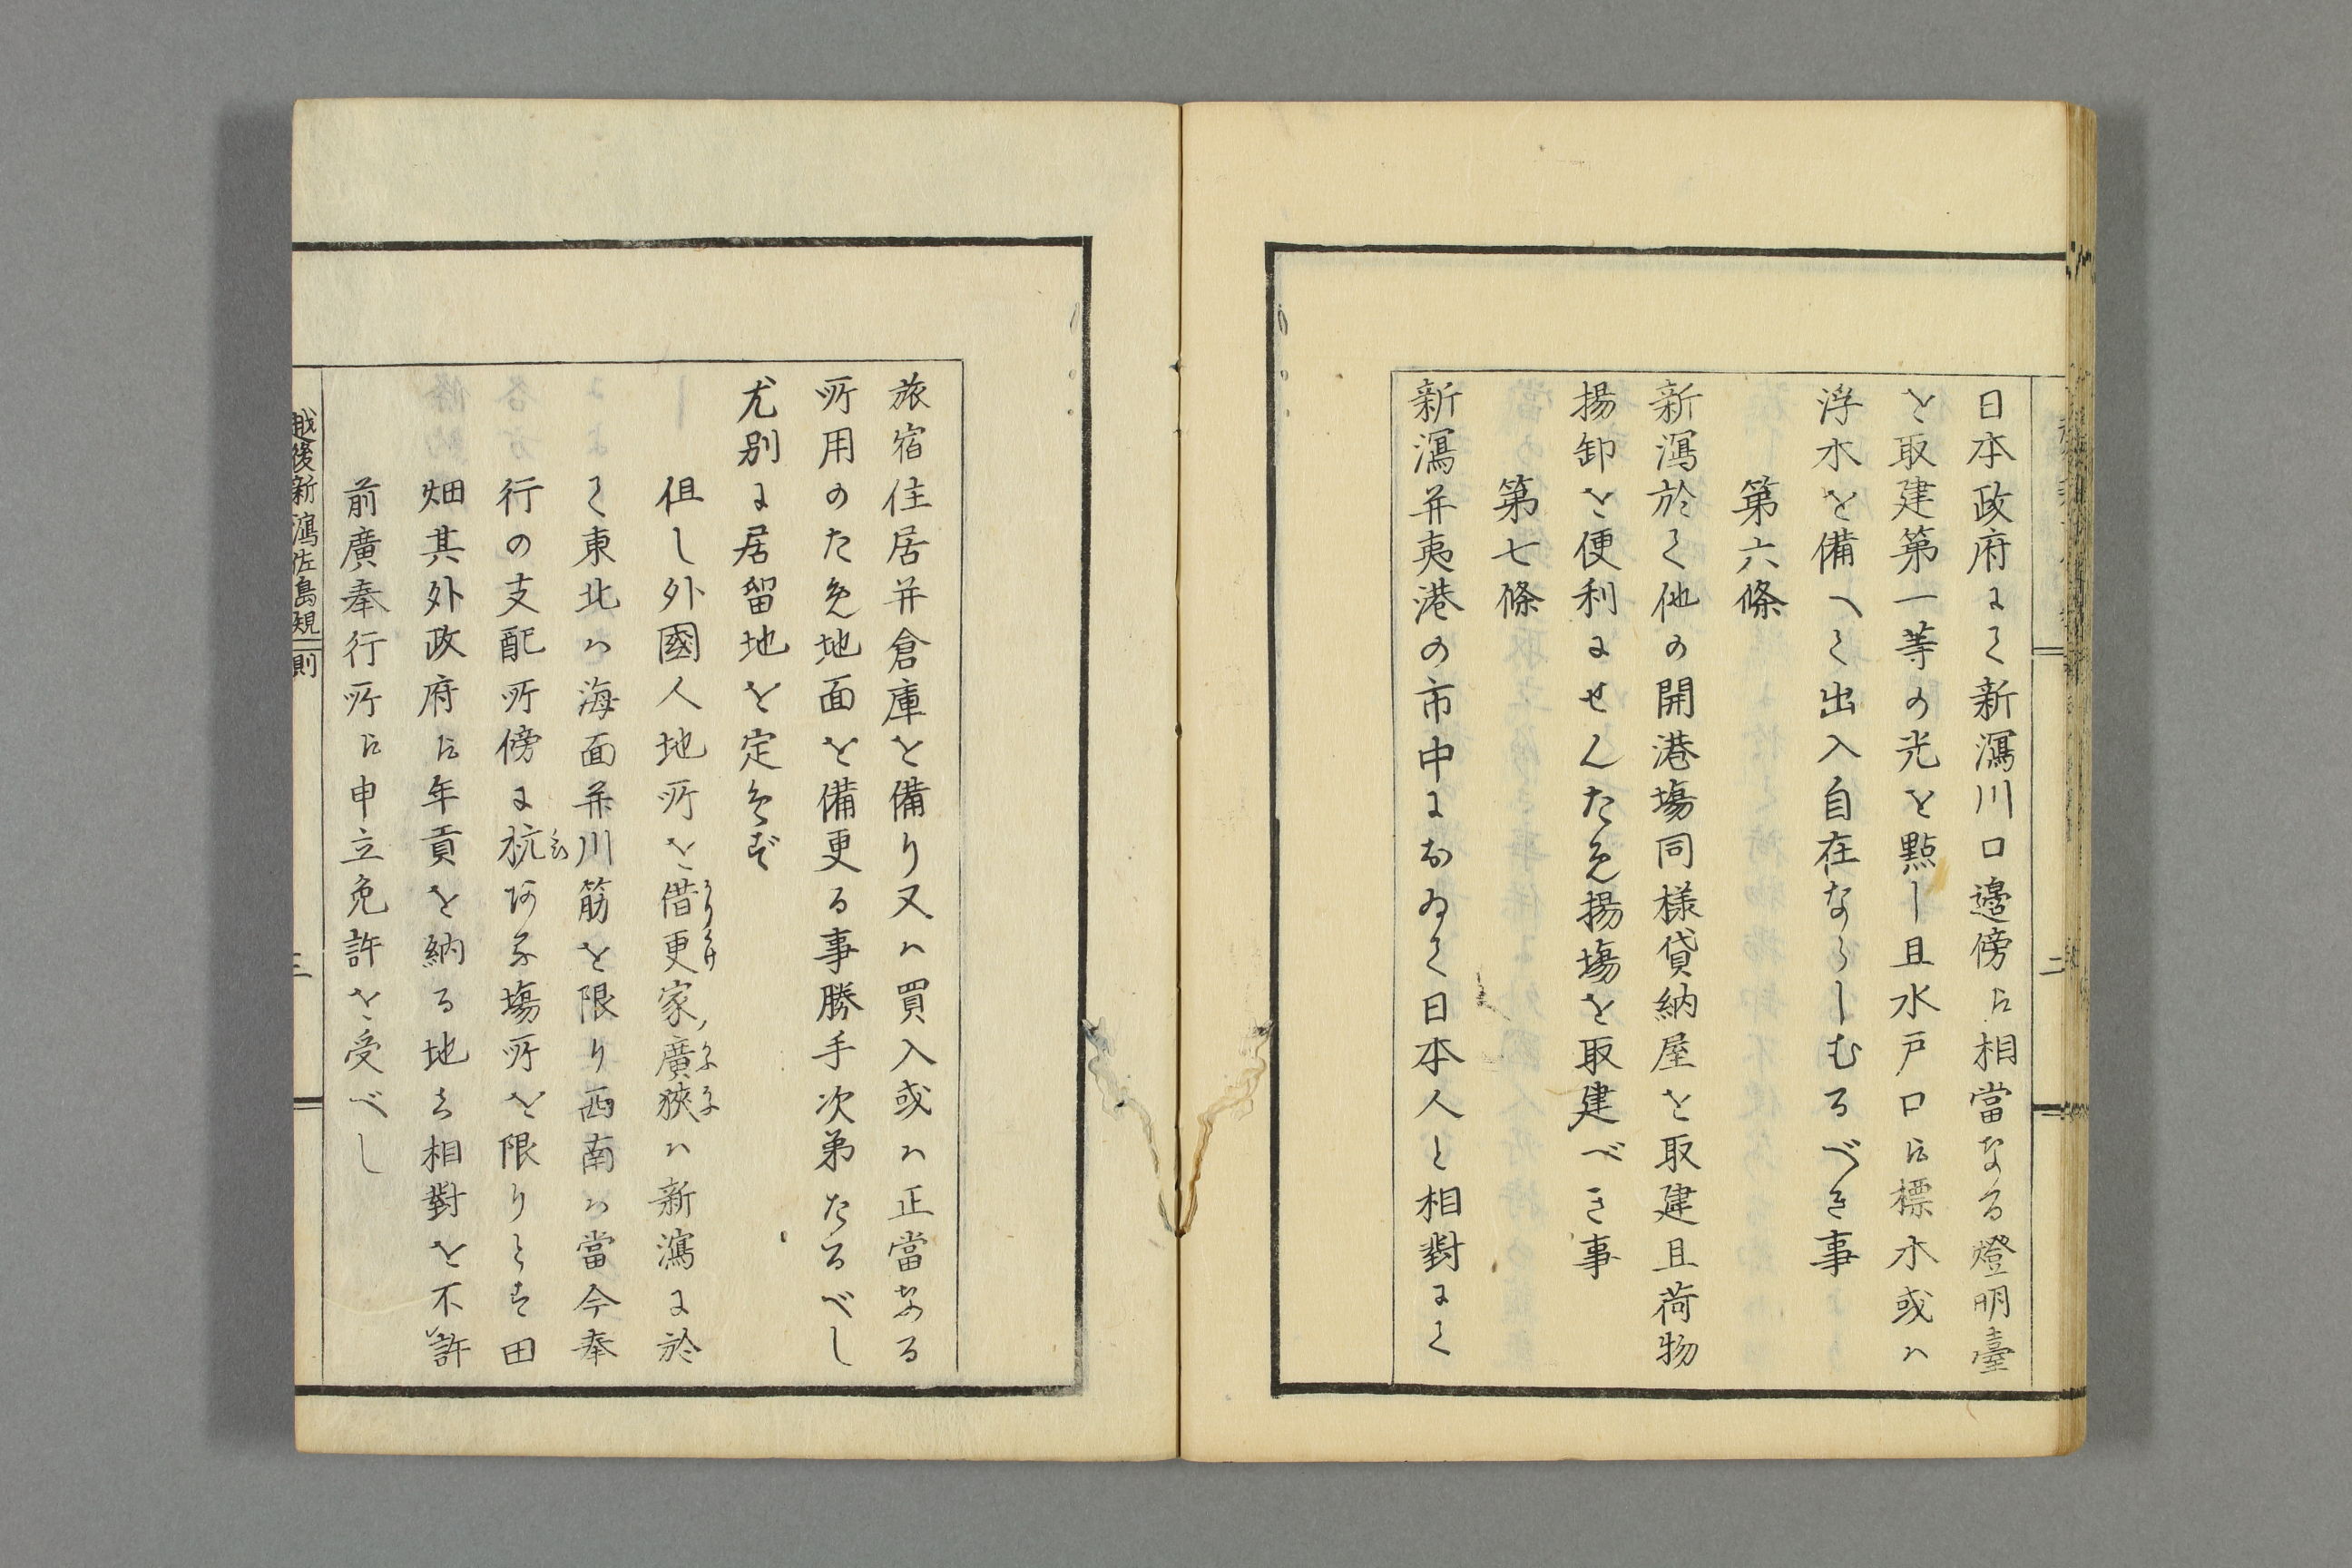 日本政府にて新瀉川口邊傍に相當なる燈明臺
を取建第一等の光を點し且水戸口に標木或ハ
浮木を備へて出入自在ならしむるべき事
第六條
新瀉於て他の開港塲同様貸納屋を取建且荷物
揚卸を便利にせんため揚塲を取建べき事
第七條
新瀉并夷港の市中におゐて日本人と相對にて
二
旅宿住居并倉庫を備り又ハ買入或ハ正當なる
所用のため地面を備更る事勝手次第たるべし
尤別に居留地を定めず
但し外國人地所を借更家廣狹ハ新瀉に於
て東北ハ海面并川筋を限り西南ハ當今奉
行の支配所傍に杭ある塲所を限りとす田
畑其外政府に年貢を納る地は相對を不許
前廣奉行所に申立免許を受べし
越後新瀉佐島規則
三